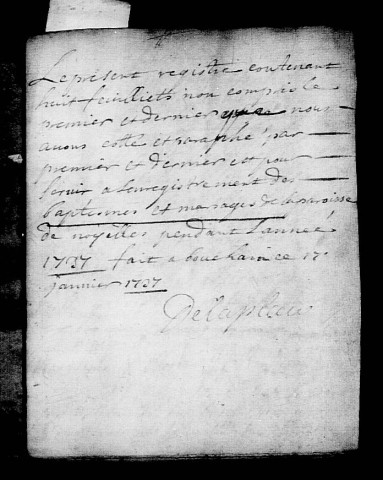 Le présent registre contenant
huit feuilliets non compris le
premier et dernier que nous
avons cotté et paraphé par
premier et dernier et pour
servir a lenregistrement des
baptesmes et mariages de la paroisse
de noyelles pendant l'année
1737 fait a bouchain ce 17e
janvier 1737
Delaplace